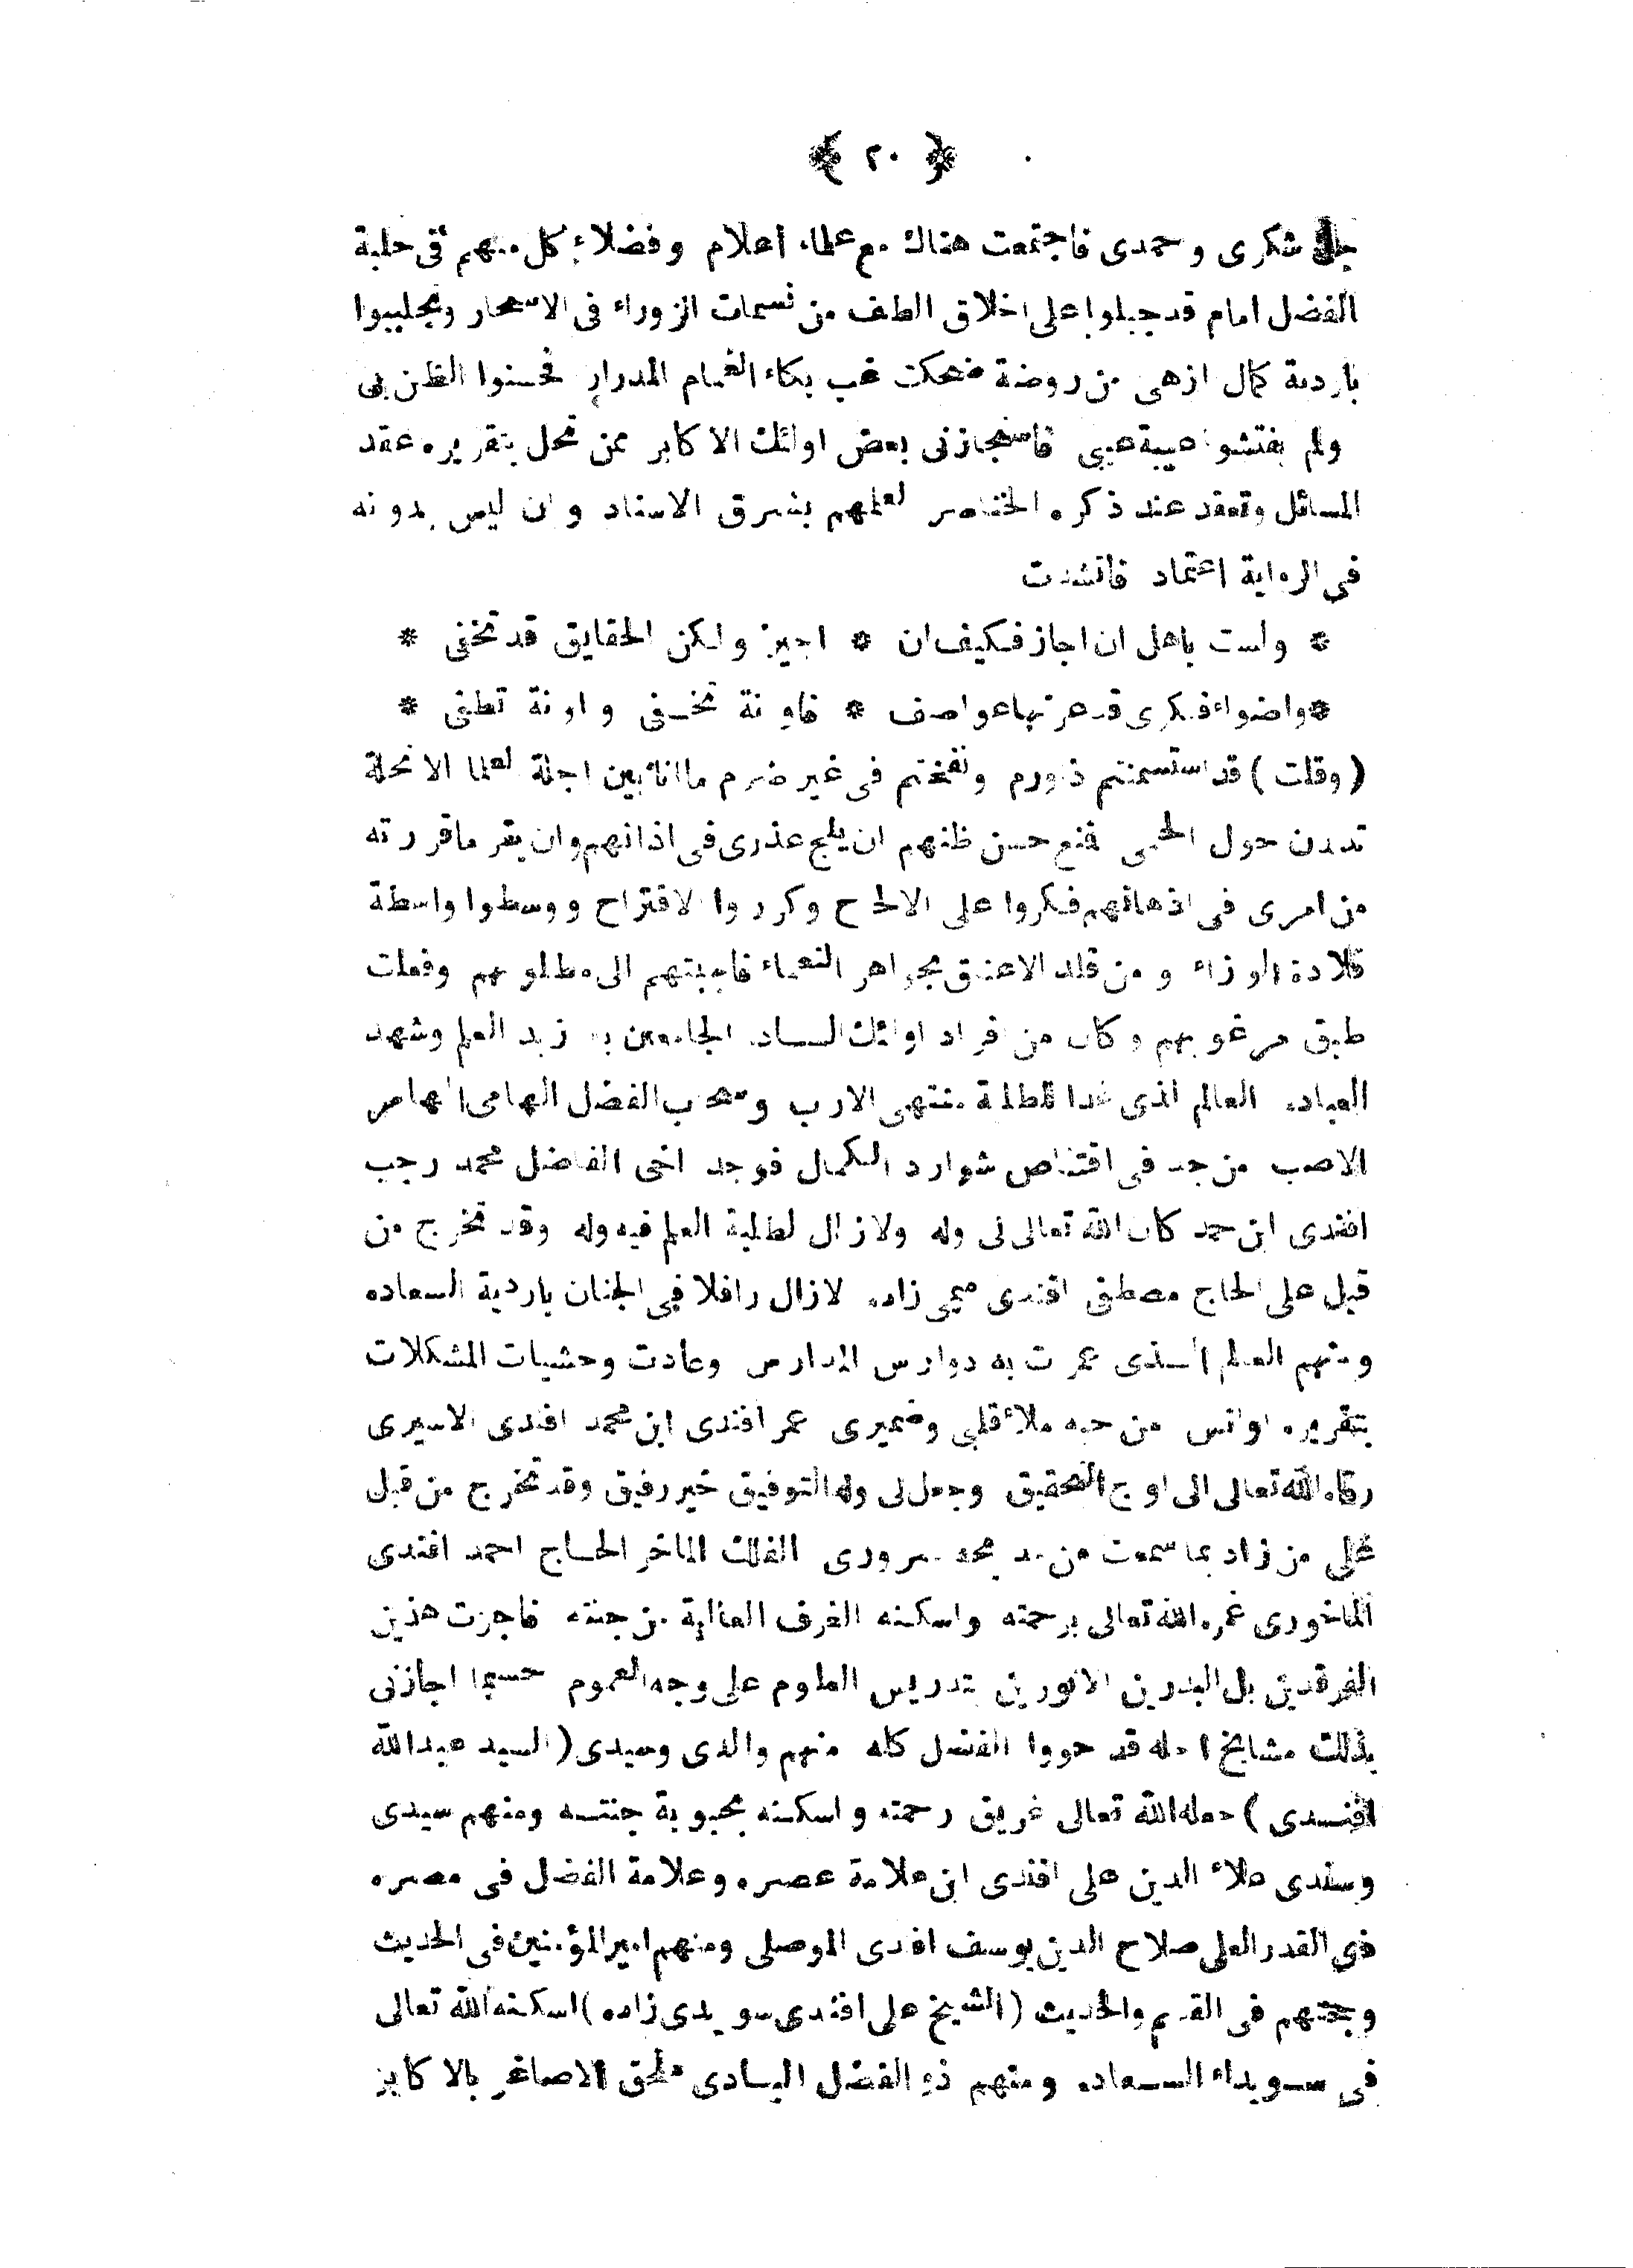 ﴿ ٢٠ ﴾
جل شكرى وحمدى فاجتمعت هناك مع علماء اعلام وفضلاء كل منهم فى حلبة
الفضل امام قد جبلوا على اخلاق الطف من نسمات الزوراء فى الاسحار وتجلببوا
باردية كمال ازهى من روضة ضحكت غب بكاء الغمام المدرار فحسنوا الظن بى
ولم يفتشوا عيبة عيبى فاستجازنى بعض اولئك الاكابر ممن تحل بتقريره عقد
المسائل وتعقد عند ذكره الخناصر لعلمهم بشرق الاسناد وان ليس بدونه
فى الرواية اعتماد فانشدت
* ولست باهل ان اجاز فكيف ان * اجيز ولكن الحقايق قد تخفى *
* واضواء فكرى قد عرتها عواصف * فاونة تخفى واونة تطفى *
(وقلت) قد استسمنتم ذا ورم ونفختم فى غير ضرم ما انا بين اجلة العلما الا نحلة
تدندن حول الحمى فمنع حسن ظنهم ان يلج عذرى فى اذانهم وان يقر ما قررته
من امرى فى اذهانهم فكروا على الالحاح وكرروا الاقتراح ووسطوا واسطة
قلادة الوزراء ومن قلد الاعناق بجواهر النعماء فاجبتهم الى مطلوبهم وفعلت
طبق مرغوبهم وكان من افراد اولئك الساده الجامعين بين زبد العلم وشهد
العباده العالم الذى غدا للطلبة منتهى الارب وسحاب الفضل الهامى الهامر
الاصب من جد فى اقتناص شوارد الكمال فوجد اخى الفاضل محمد رجب
افندى ابن حمد كان الله تعالى لى وله ولازال لطلبة العلم فيه وله وقد تخرج من
قبل على الحاج مصطفى افندى ميمى زاده لازال رافلا فى الجنان باردية السعاده
ومنهم العلم الذى عمرت به دوارس المدارس وعادت وحشيات المشكلات
بتقريره اوانس من حبه ملاء قلبى وضميرى عمر افندى ابن محمد افندى الاسيرى
رقاه الله تعالى الى اوج التحقيق وجعل لى وله التوفيق خير رفيق وقد تخرج من قبل
على من زاد بما سمعت من مد بحره سرورى الفلك الماخر الحاج احمد افندى
الماخورى غمره الله تعالى برحمته واسكنه الغرف العالية من جنته فاجزت هذين
الفرقدين بل البدرين الانورين بتدريس العلوم على وجه العموم حسبما اجازنى
بذلك مشايخ اجله قد حووا الفضل كله منهم والدى وسيدى (السيد عبدالله
افندى) جعله الله تعالى غريق رحمته واسكنه بحبوبة جنته ومنهم سيدى
وسندى علاء الدين على افندى ابن علامة عصره وعلامة الفضل فى مصره
ذى القدر العلى صلاح الدين يوسف افندى الموصلى ومنهم امير المؤمنين فى الحديث
وحجتهم فى القديم والحديث (الشيخ على افندى سويدى زاده) اسكنه الله تعالى
فى سويداء السعاده ومنهم ذو الفضل البادى ملحق الاصاغر بالاكابر